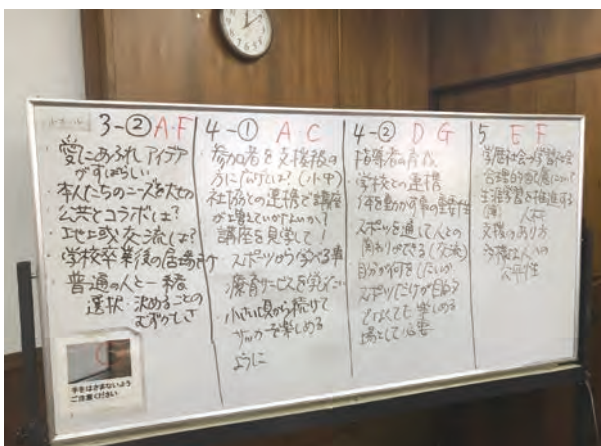 3-② A・F
愛にあふれ アイデア
がすばらしい
本人たちのニーズを大切に
公共とコラボは?
地域交流は?
学校卒業後の居場所
普通の人と一緒
選択・決めることの
むずかしさ
手をはさまないよう
ご注意ください
4-① A C
参加者を支援級の
方に広げては?(小中)
社協との連携で講座
が増えていかないか?
講座を見学して!
スポーツから学べる事
療育サービスを
小さい頃から続けて
サッカーを楽しめる
ように
4-② D G
指導者の育成
学校との連携
体を動かす事の重要性
スポーツを通して人との
関わりができる(交流)
自分が何をしたいか
スポーツだけが目的
でなくても楽しめる
場として必要
5 E F
学歴社会→学習社会
合理的配慮について
生涯学習を推進する
人不足
支援のあり方
今後は人への
公平性